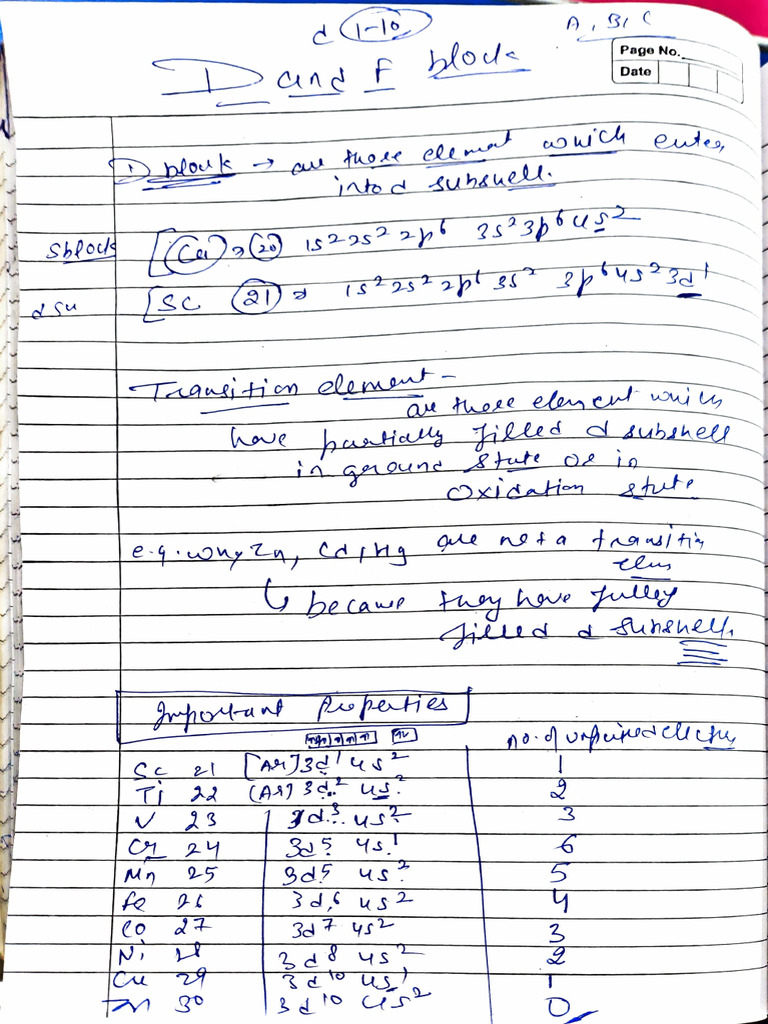 d 1-10
A, B, C
D and F block
Page No.
Date
D block → are those elemat which enters
into d subshell.
S block [Ca → 20 1s² 2s² 2p⁶ 3s² 3p⁶ 4s²
d su [Sc 21 → 1s² 2s² 2p⁶ 3s² 3p⁶ 4s² 3d¹
Transition element -
are those element which
have partially filled d subshell
in ground state or in
oxidation state
e.g. why Zn, Cd, Hg are not a transitin
elem
↳ because they have fulley
filled d subshell.
Important Properties
no. of unpaired electrons
Sc 21 [Ar] 3d¹ 4s² 1
Ti 22 (Ar) 3d² 4s² 2
V 23 3d³ 4s² 3
Cr 24 3d⁵ 4s¹ 6
Mn 25 3d⁵ 4s² 5
Fe 26 3d⁶ 4s² 4
Co 27 3d⁷ 4s² 3
Ni 28 3d⁸ 4s² 2
Cu 29 3d¹⁰ 4s¹ 1
Zn 30 3d¹⁰ 4s² 0